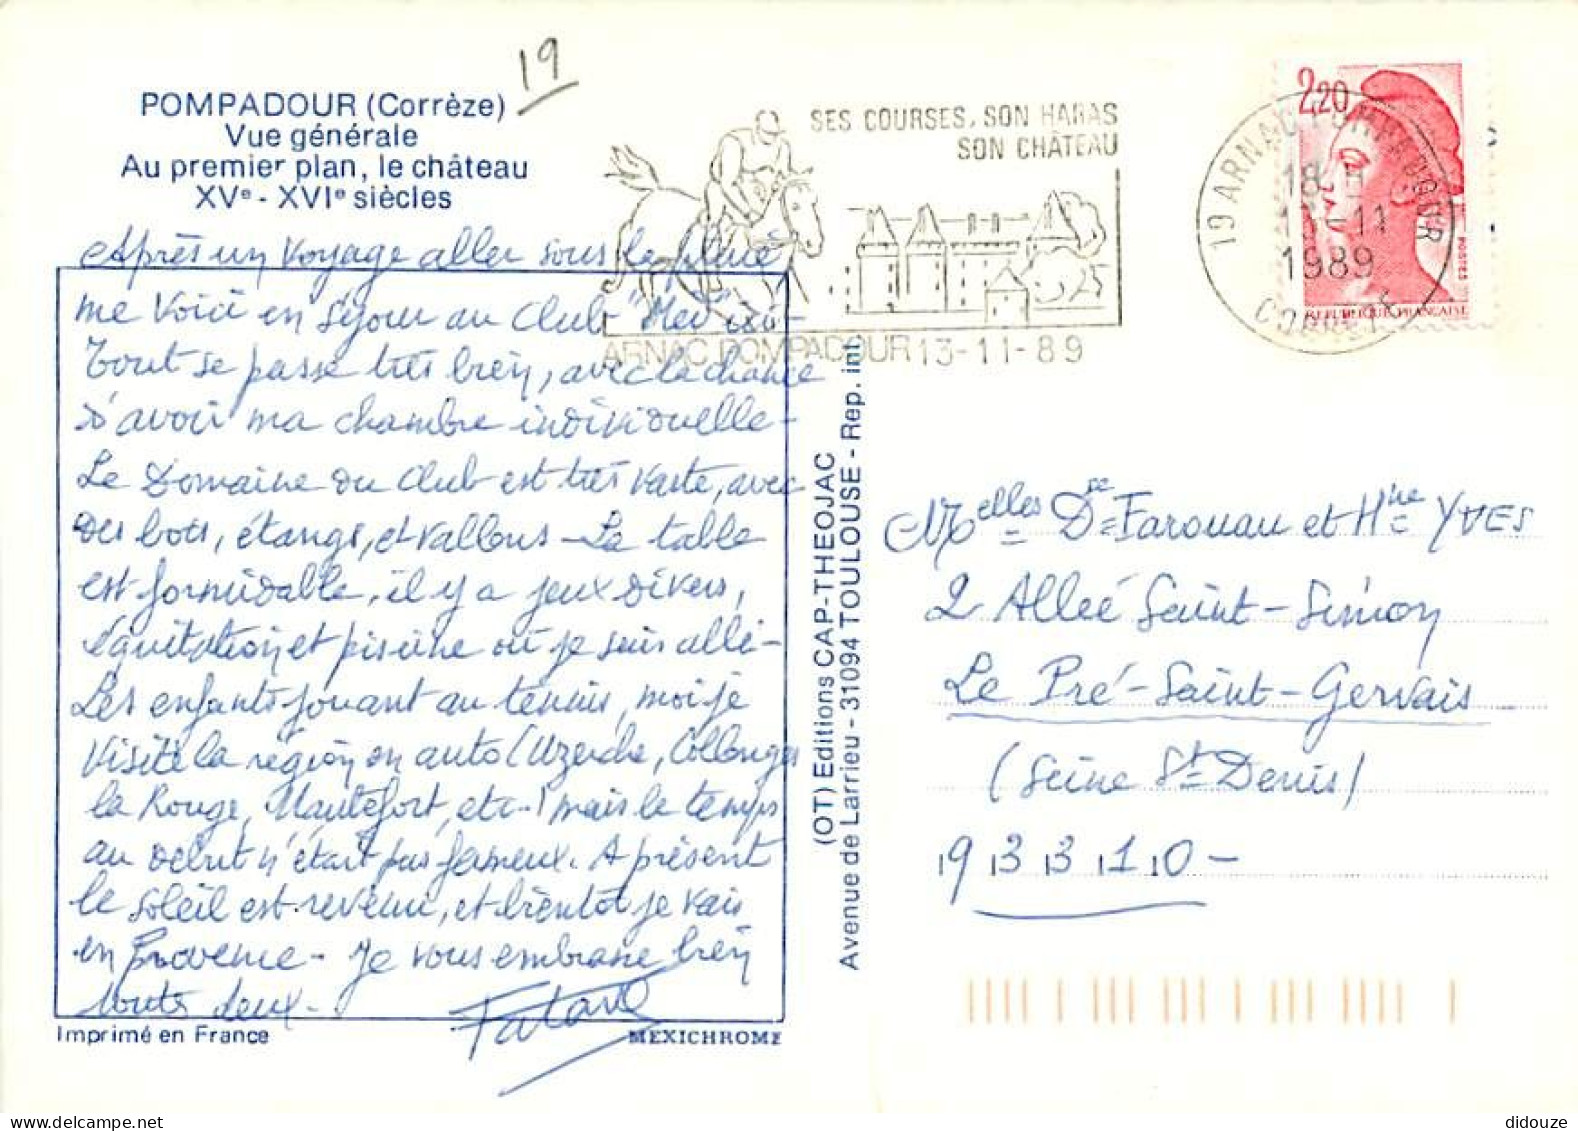 19
POMPADOUR (Corrèze)
Vue générale
Au premier plan, le château
XVe - XVIe siècles
SES COURSES, SON HARAS
SON CHÂTEAU
ARNAC POMPADOUR 13-11-89
19 ARNAC POMPADOUR
18 H
13-11
1989
CORREZE
2,20
POSTES
REPUBLIQUE FRANÇAISE
Après un voyage aller sous la pluie
me voici en séjour au Club "Med" ici -
Tout se passe très bien, avec la chance
d'avoir ma chambre individuelle -
Le Domaine du Club est très vaste, avec
des bois, étangs, et vallons - La table
est formidable, il y a jeux divers,
équitation et piscine où je suis allé -
Les enfants jouant au tennis, moi je
visite la région en auto (Uzerche, Collonges
la Rouge, Hautefort, etc.) mais le temps
au début n'était pas fameux. A présent
le soleil est revenu, et bientôt je vais
en Provence - Je vous embrasse bien
toutes deux -
Imprimé en France
MEXICHROME
(OT) Editions CAP-THEOJAC
Avenue de Larrieu - 31094 TOULOUSE - Rep. int.
Melles Dse Farouau et Hne YVES
2 Allée Saint-Simon
Le Pré-Saint-Gervais
(Seine St Denis)
93310 -
didouze